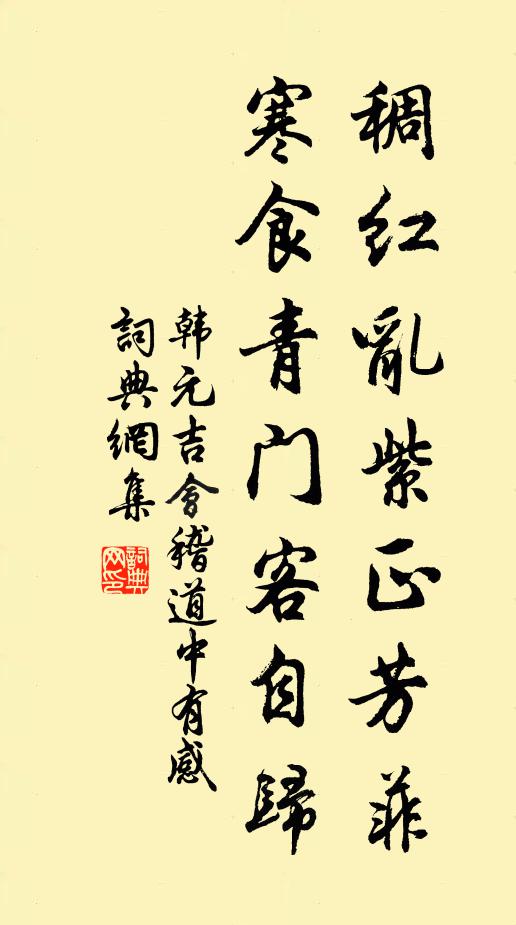 稠红亂紫正芳菲
寒食青门客自歸
韩元吉會稽道中有感
詞典網集
詞典网印